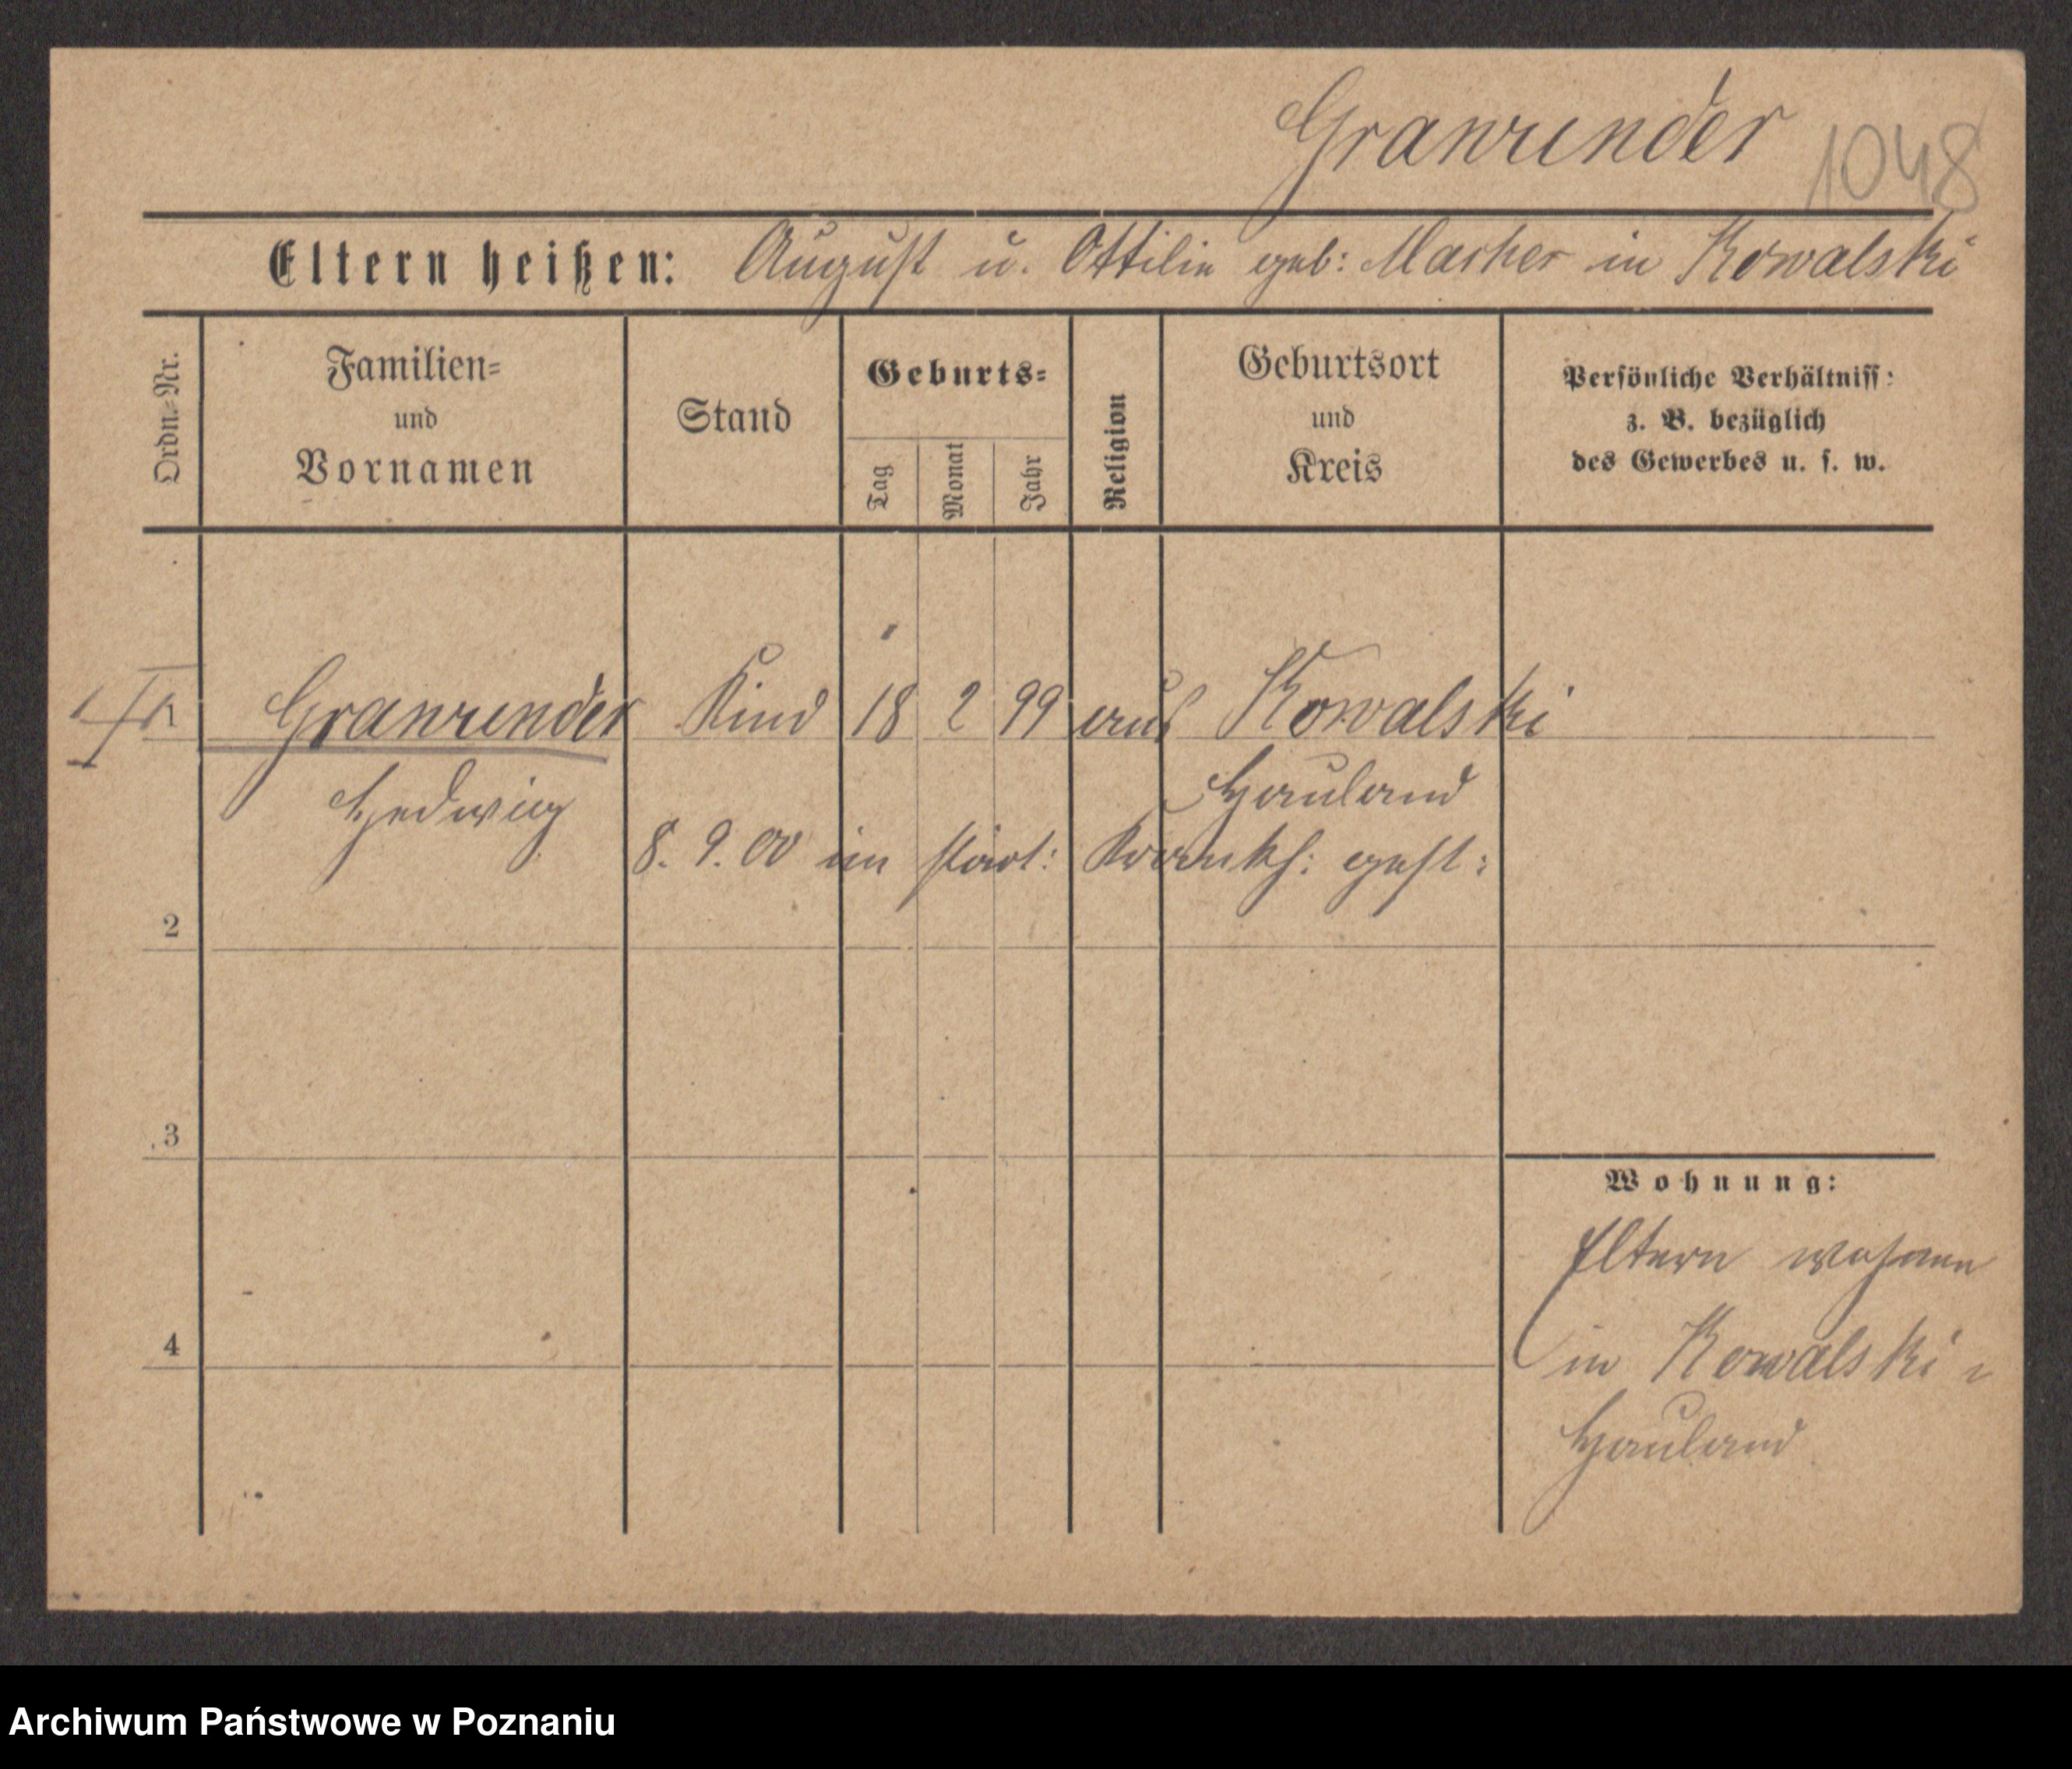 Granrender
1048
Eltern heißen: August u. Ottilie geb: Marker in Kowalski
Ordn.-Nr.
Familien-
und
Vornamen
Stand
Geburts-
Tag
Monat
Jahr
Religion
Geburtsort
und
Kreis
Persönliche Verhältniss:
z. B. bezüglich
des Gewerbes u. s. w.
Granrender Kind 18 2 99 aus Kowalski
Hedwig Hauland
8. 9. 00 im städt: Krankh: gest:
2
3
4
Wohnung:
Eltern wohnen
in Kowalski-
Hauland
Archiwum Państwowe w Poznaniu